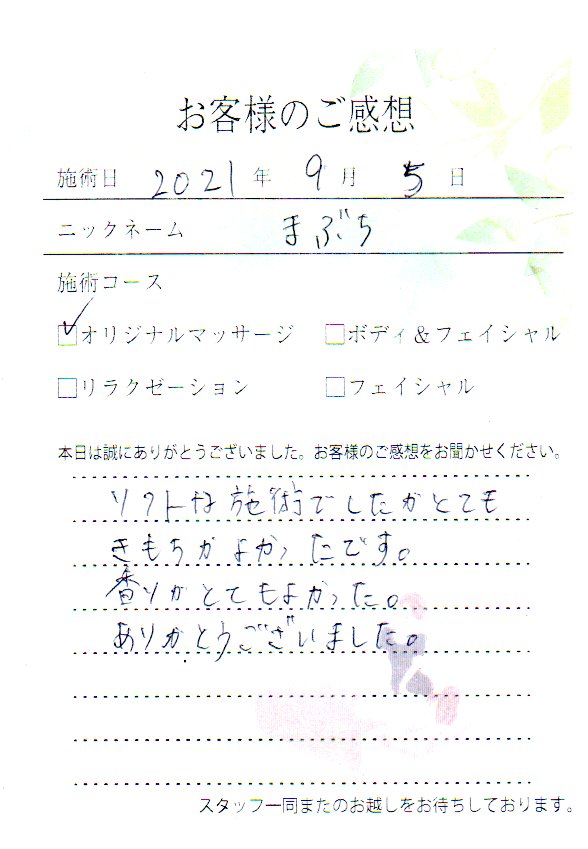 お客様のご感想
施術日 2021 年 9 月 5 日
ニックネーム まぶち
施術コース
☑オリジナルマッサージ □ボディ&フェイシャル
□リラクゼーション □フェイシャル
本日は誠にありがとうございました。お客様のご感想をお聞かせください。
ソフトな施術でしたがとても
きもちがよかったです。
香りがとてもよかった。
ありがとうございました。
スタッフ一同またのお越しをお待ちしております。